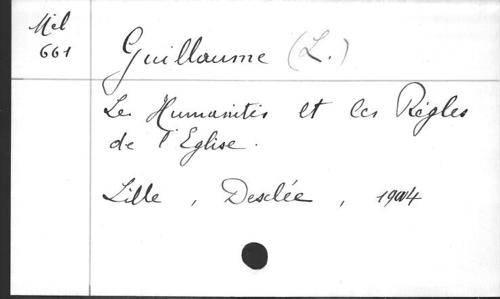 Mel
661
Guillaume (L.)
Les Humanités et les Règles
de l'Eglise.
Lille, Desclée, 1904